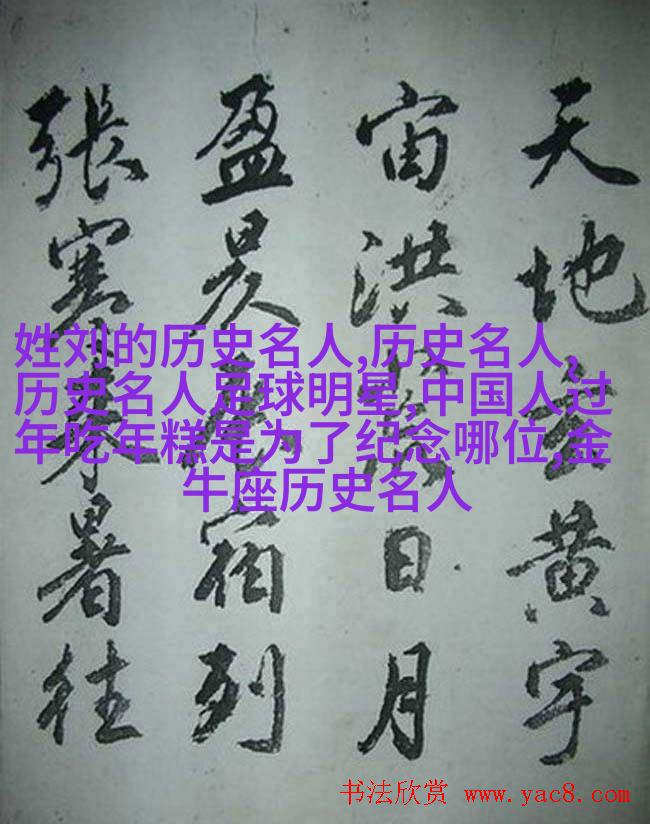 天地玄黄宇
宙洪荒日月
盈昃辰宿列
張寒來暑往
姓刘的历史名人,历史名人,
历史名人足球明星,中国人过
年吃年糕是为了纪念哪位,金
牛座历史名人
书法欣赏 www.yac8.com